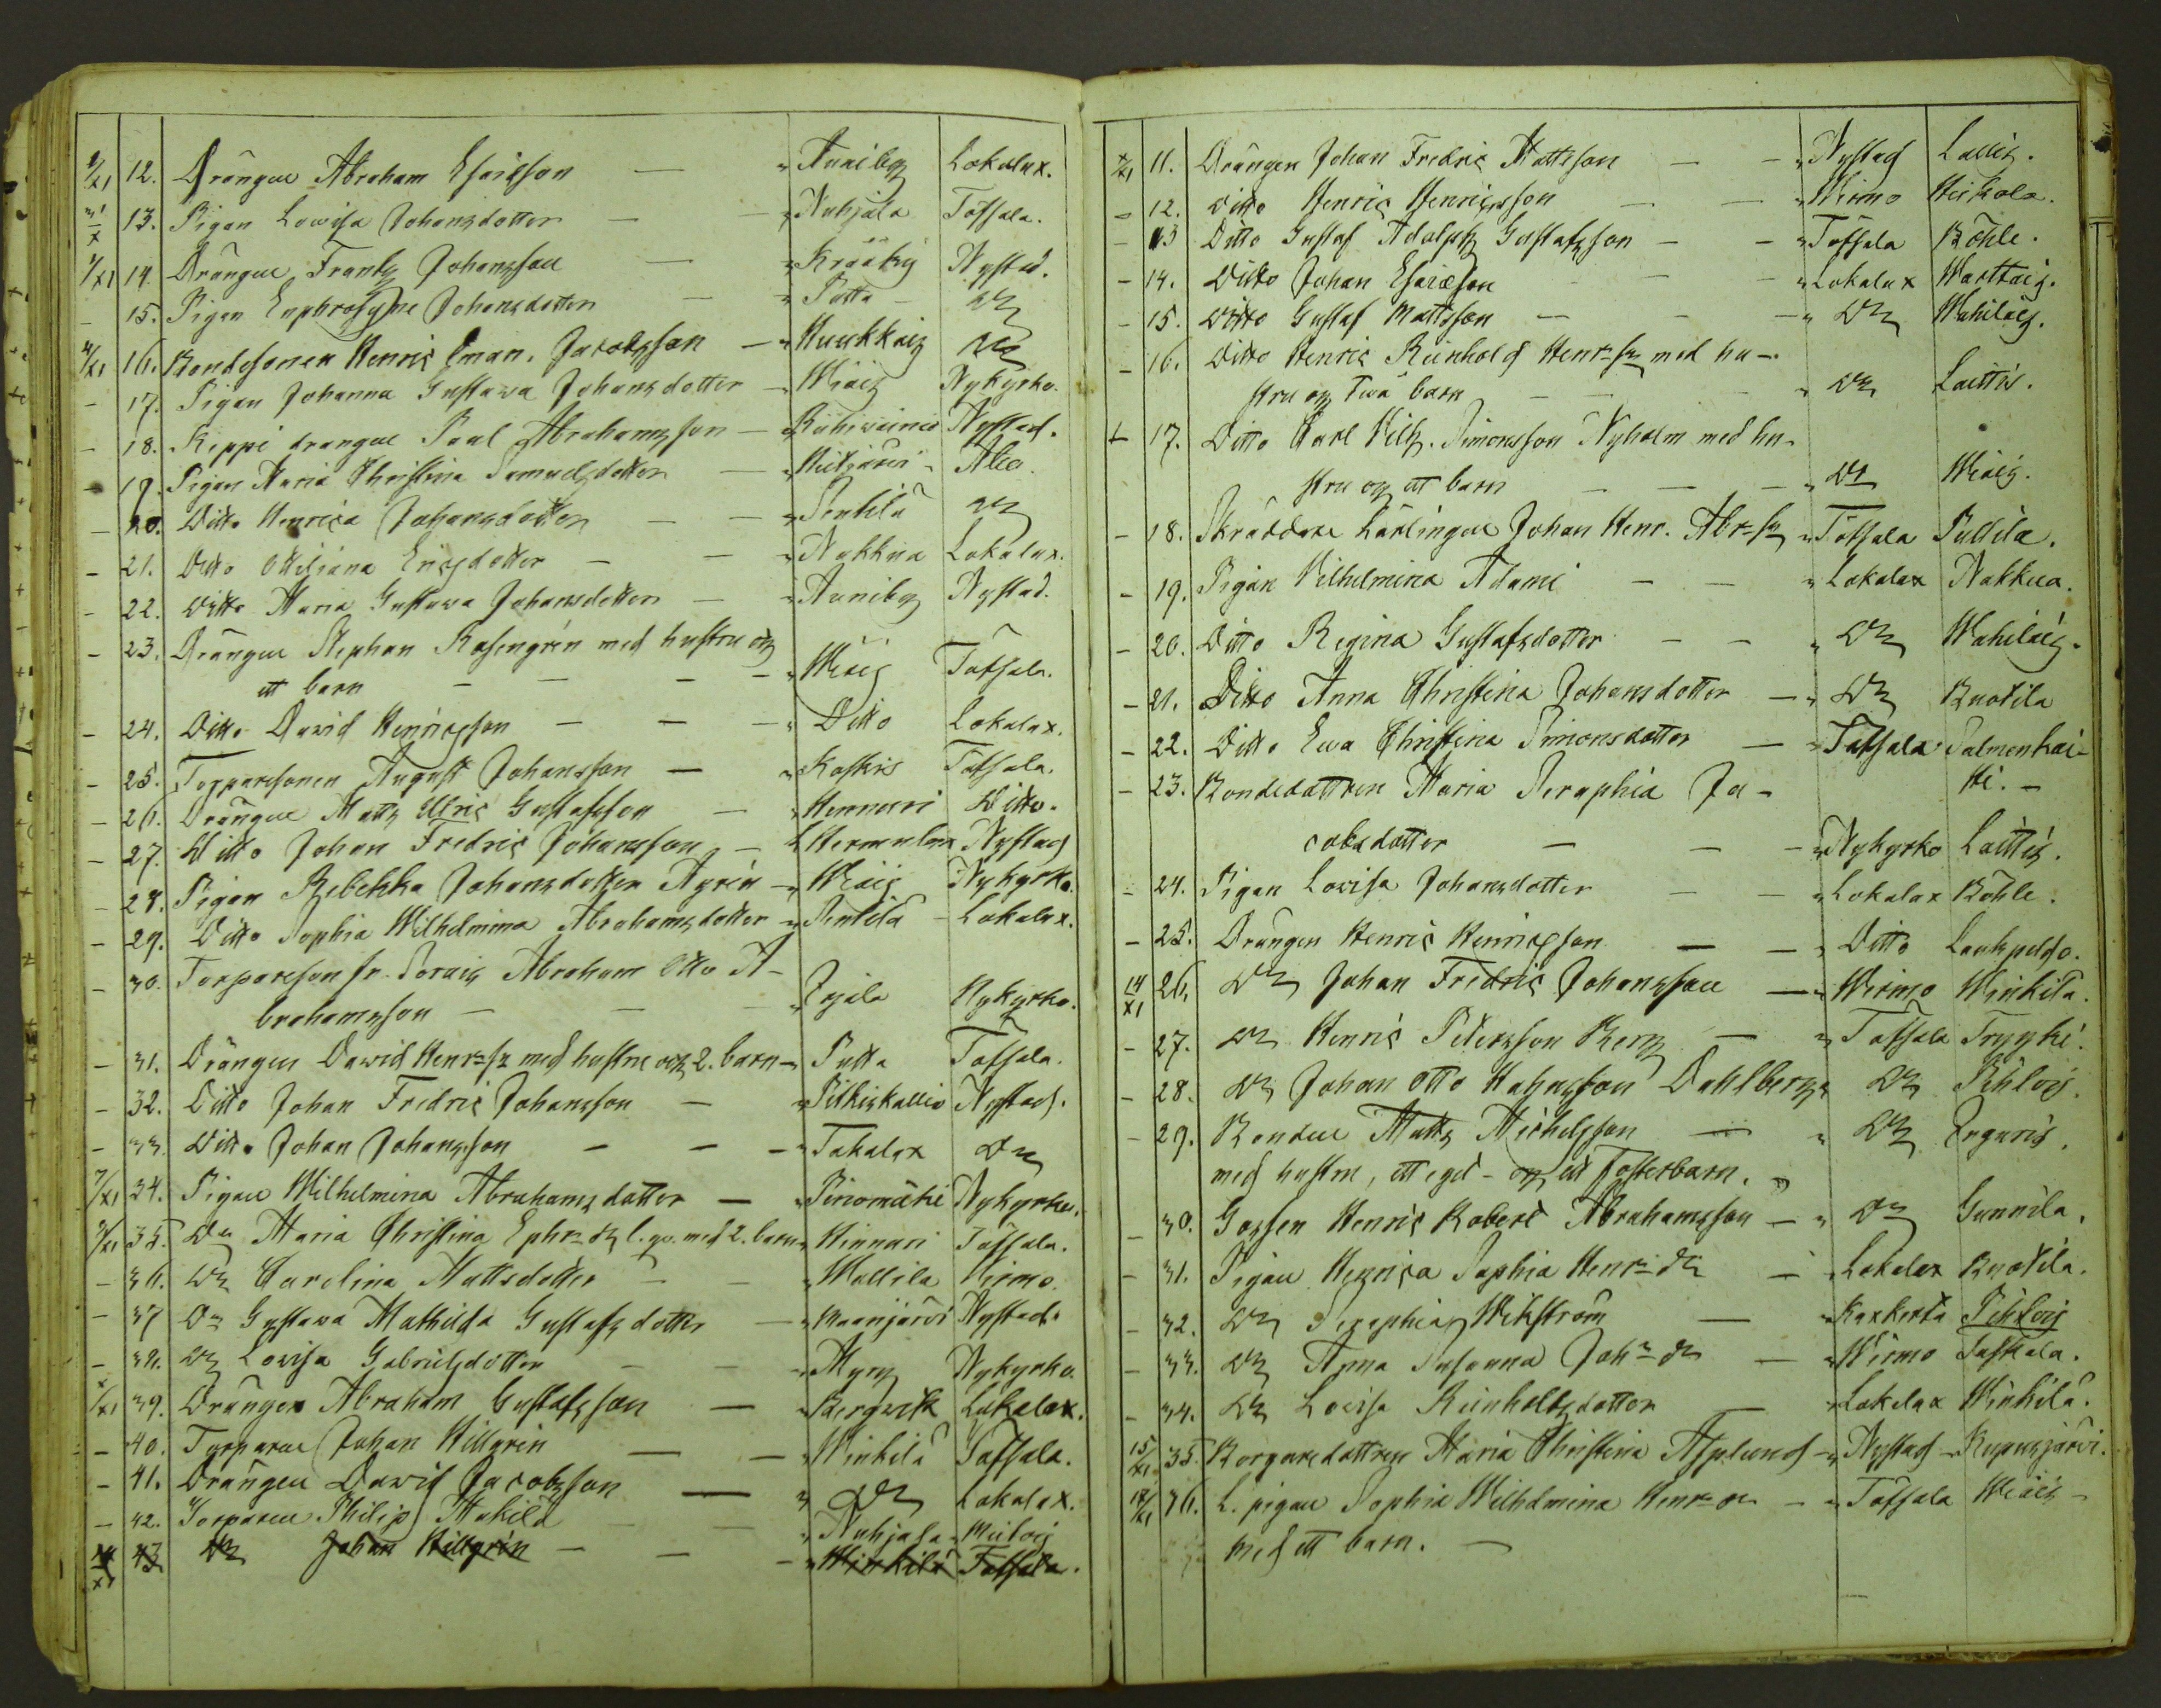 1/XI 12. Drängen Abraham Esaiæson — " Anniby Lokalax.
31/X 13. Pigan Lowisa Johansdotter — " Nuhjala Tofsala.
1/XI 14 Drängen Frantz Johansson — " Krääky Nystad.
– 15. Pigan Euphrosyne Johansdotter — " Putta – Do
4/XI 16. Bondesonen Henric Eman. Jacobsson — " Huukkais Do
– 17. Pigan Johanna Gustava Johansdotter — " Wiais Nykyrko.
– 18. Reppi drängen Paul Abrahamsson — " Nystad.
– 19. Pigan Maria Christina Samuelsdotter — " Åbo
– 20. Ditto Henrica Johansdotter — — " Sentilä Do
– 21. Ditto Ottiliana Ericsdotter — — " Nakkua Lokalax.
– 22. Ditto Maria Gustava Johansdotter — " Anniby Nystad.
– 23. Drängen Stephan Rosengrén med hustru och
ett barn — — — " Wiais Tofsala.
– 24. Ditto David Henricsson — — — " Ditto Lokalax.
– 25. Torparesonen August Johansson — " Koskis Tofsala.
– 26. Drängen Matts Ulric Gustafsson — " Hennari Ditto.
– 27. Ditto Johan Fredric Johansson — Nystad
– 28. Pigan Rebekka Johansdotter Agrén — " Wiais Nykyrko.
– 29. Ditto Sophia Wilhelmina Abrahamsdotter " Sentilä – Lokalax.
– 30. Torpareson fr. Abraham Otto A-
brahamsson — — " Nykyrko.
– 31. Drängen David Henrsz med hustru och 2. barn — Putta Tofsala.
– 32. Ditto Johan Fredric Johansson — " Pitkiskallio Nystad.
– 33. Ditto Johan Johansson — — — " Takalax Do
7/XI 34. Pigan Wilhelmina Abrahamsdotter — " Nykyrko.
35. Do Maria Christina Ephrdr l. qv. med 2. barn " Hinnari Tofsala.
– 36. Do Carolina Mattsdotter — — " Wallila Wirmo.
– 37 Do Gustava Mathilda Gustafsdotter — " Maanjärvi Nystad.
– 38. Do Lovisa Gabrielsdotter — — — " Myry Nykyrko.
39. Drängen Abraham Gustafsson — " Bergwik Lokalax.
– 40. Torparen Johan Hillgrén — — " Winkilä Tofsala.
– 41. Drängen David Jacobsson — " Do Lokalax.
– 42. Torparen Philip — — " Nuhjala –
43 Do Johan Hillgrén — — — " Winkilä Tofsala.
11. Drängen Johan Fredric Mattsson — — " Nystad Laitis.
– 12. Ditto Henric Henricsson — — " Wirmo Heikola.
– 13 Ditto Gustaf Adolph Gustafsson — — " Tofsala Böhle.
– 14. Ditto Johan Esaiæson — — " Lokalax Warttais.
– 15. Ditto Gustaf Mattsson — — — " Do Wahilais.
– 16. Ditto Henric Reinhold Henrsz med hu-
stru och två barn — — — " Do Laittis.
17. Ditto Carl Vilh. Simonsson Nyholm med hu-
stru och ett barn — — — " Do Wiais.
– 18. Skräddare Lärlingen Johan Henr. Abrsz " Tofsala Pullila.
– 19. Pigan Vilhelmina Adami — — " Lokalax Nakkua.
– 20. Ditto Regina Gustafsdotter — — " Do Wahilais.
– 21. Ditto Anna Christina Johansdotter — " Do Knotila
– 22. Ditto Eva Christina Simonsdotter — " Tofsala Salmenhai-
tti. –
– 23. Bondedottren Maria Seraphia Ja-
cobsdotter — — — " Nykyrko Laittis.
– 24. Pigan Lovisa Johansdotter — — " Lokalax Böhle.
– 25. Drängen Henric Henricsson — — " Ditto Laukpelto.
14/XI 26. Do Johan Fredric Johansson — " Wirmo Winkilä.
– 27. Do Henric Petersson Berg — " Tofsala Tryyki.
– 28. Do Johan Otto Dahlberg " Do Pihlois.
– 29. Bonden Matts Michelsson — " Do
med hustru, ett eget – och ett Fosterbarn. "
– 30. Gossen Henric Robert Abrahamsson — " Do Gunnila.
– 31. Pigan Henrica Sophia Henrdr — " Lokalax Knotila.
– 32. Do Seraphia Wikström — " Karkerta Pihlois
– 33. Do Anna Susanna Johdr — " Wirmo Saskala.
– 34. Do Lovisa Reinholdsdotter — " Lokalax Winkilä.
15/XI 35. Borgaredottren Maria Christina Asplund — " Nystad –
17/XI 36. L. pigan Sophia Wilhelmina Henrdr – " Tofsala Wiais –
med ett barn. —